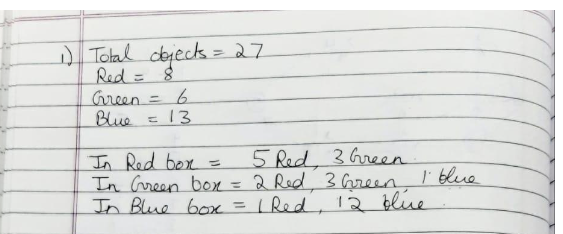 1) Total objects = 27
Red = 8
Green = 6
Blue = 13
In Red box = 5 Red, 3 Green
In Green box = 2 Red, 3 Green, 1 blue
In Blue box = 1 Red, 12 blue